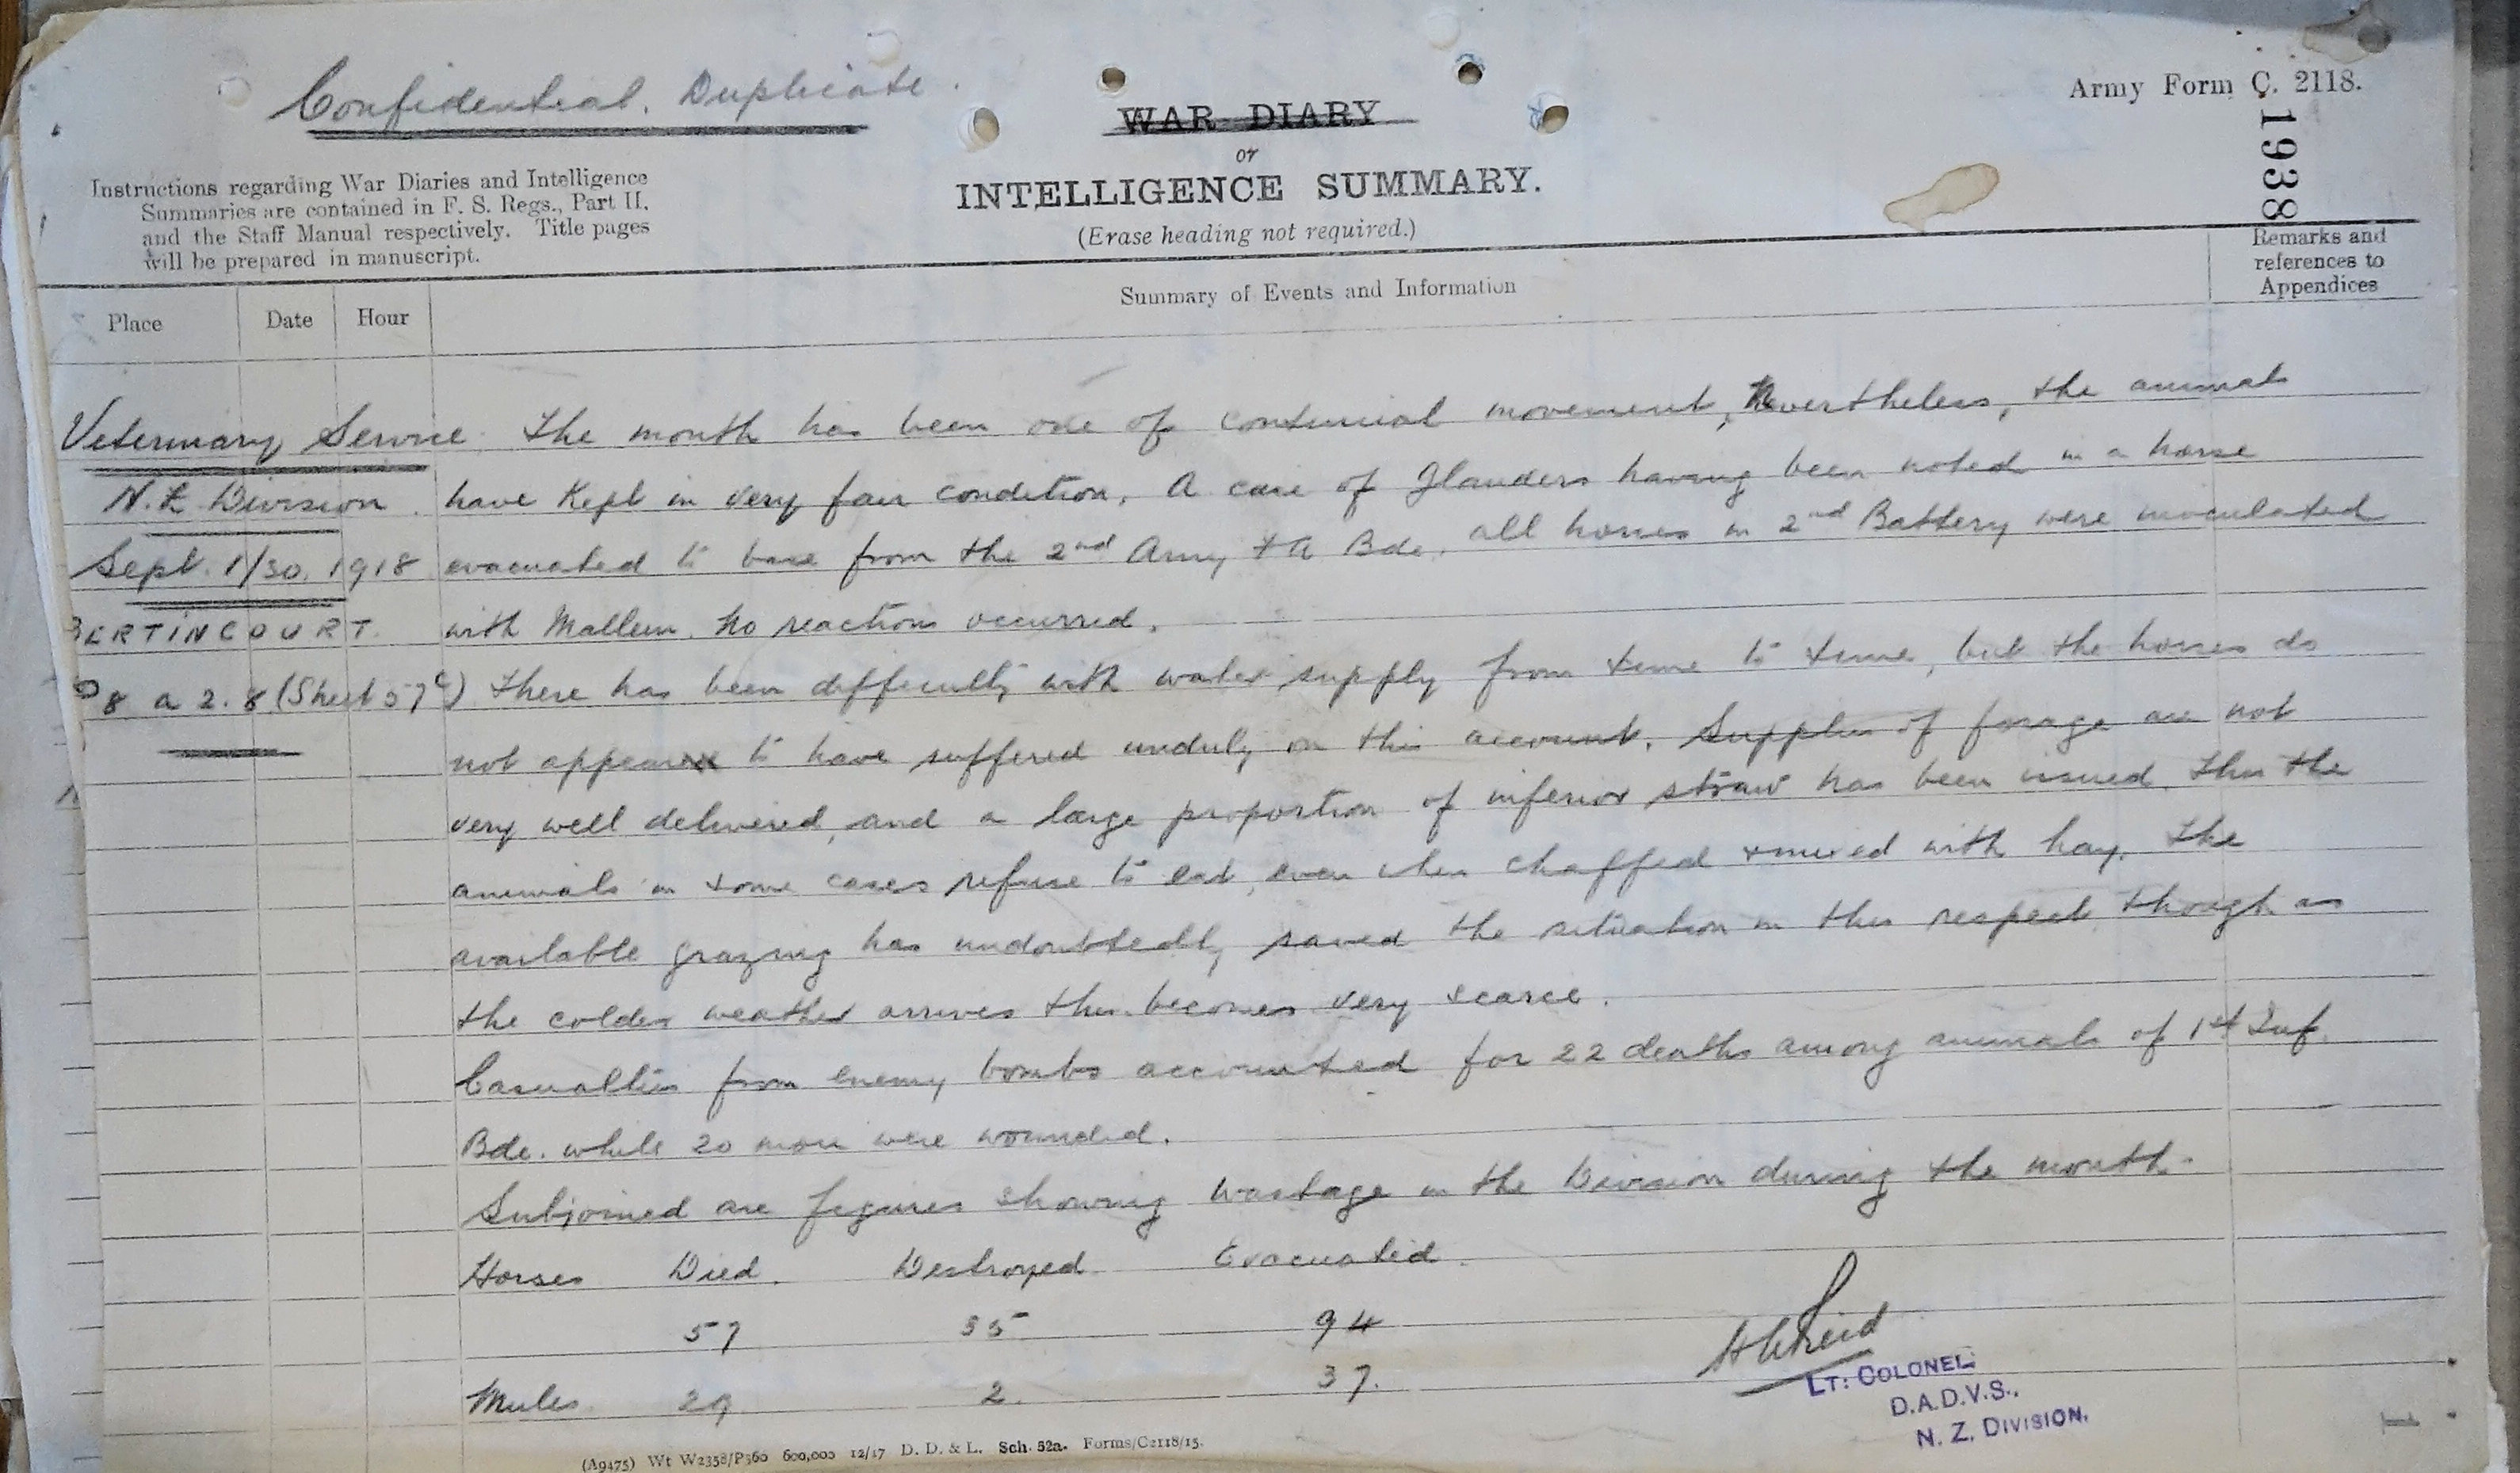 Confidential. Duplicate.
Army Form C. 2118.
1938
WAR DIARY
or
INTELLIGENCE SUMMARY.
(Erase heading not required.)
Instructions regarding War Diaries and Intelligence
Summaries are contained in F. S. Regs., Part II.
and the Staff Manual respectively. Title pages
will be prepared in manuscript.
Place
Date
Hour
Summary of Events and Information
Remarks and
references to
Appendices
Veterinary Service
N.Z Division.
Sept. 1/30. 1918
BERTINCOURT.
8 a 2. 8 (Sheet 57c)
The month has been one of continual movement, Nevertheless, the animals
have kept in very fair condition. A case of Glanders having been noted in a horse
evacuated to base from the 2nd Army F A Bde. all horses in 2nd Battery were inoculated
with Mallein. No reactions occurred.
There has been difficulty with water supply from time to time, but the horses do
not appear to have suffered unduly on this account. Supplies of forage are not
very well delivered, and a large proportion of inferior straw has been issued. This the
animals in some cases refuse to eat, even when chaffed & mixed with hay. The
available grazing has undoubtedly saved the situation in this respect though as
the colder weather arrives this becomes very scarce.
Casualties from enemy bombs accounted for 22 deaths among animals of 1st Inf.
Bde. while 20 more were wounded.
Subjoined are figures showing wastage in the Division during the month.
Horses Died. Destroyed Evacuated.
57 35 94
Mules 29 2. 37.
H A Reid
LT: COLONEL
D.A.D.V.S.,
N. Z. DIVISION.
(A9475) Wt W2358/P360 600,000 12/17 D. D. & L. Sch. 52a. Forms/C2118/15.